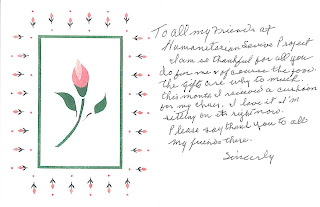 To all my Friends at
Humanitarian Service Project
I am so thankful for all you
do for me & of course the food.
the gifts are way to much.
this month I received a cushion
for my chair. I love it I'm
sitting on it right now.
Please say thank you to all
my friends there.
Sincerly